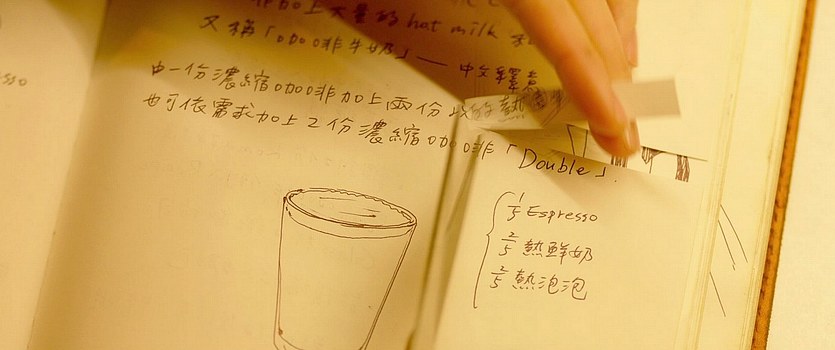 非加上大量的hot milk
又稱「咖啡牛奶」——中文釋意
sso
由一份濃縮咖啡加上兩份
也可依需求加上2份濃縮咖啡「Double」.
1/5 Espresso
2/5 熱鮮奶
2/5 熱泡泡